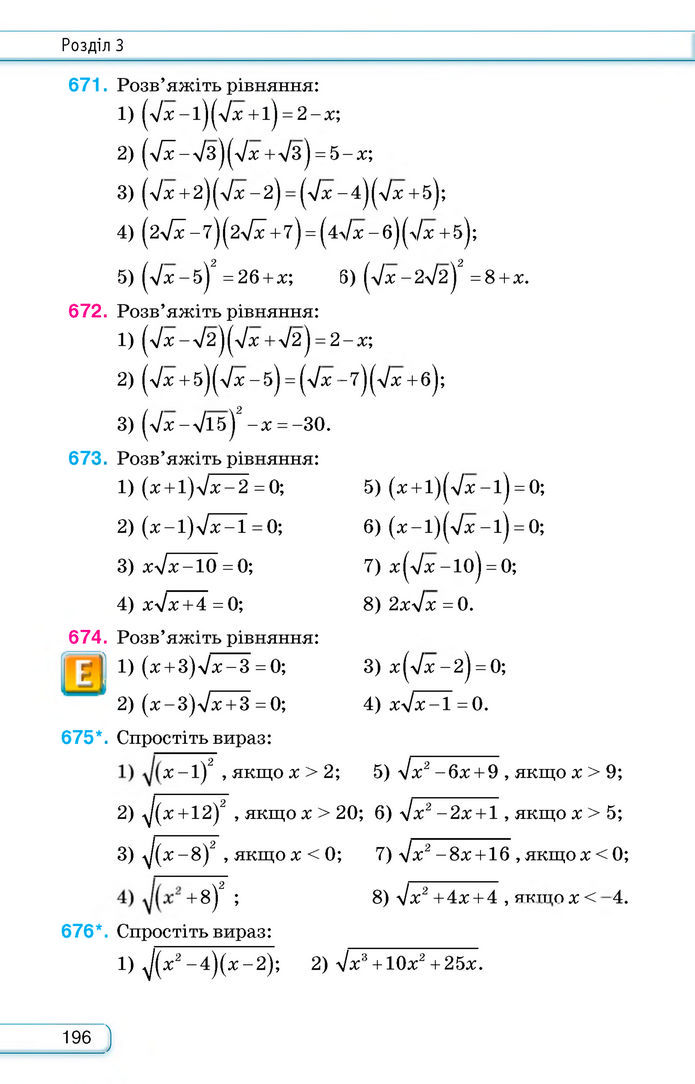 Розділ 3
671. Розв’яжіть рівняння:
1) (√x − 1)(√x + 1) = 2 − x;
2) (√x − √3)(√x + √3) = 5 − x;
3) (√x + 2)(√x − 2) = (√x − 4)(√x + 5);
4) (2√x − 7)(2√x + 7) = (4√x − 6)(√x + 5);
5) (√x − 5)² = 26 + x; 6) (√x − 2√2)² = 8 + x.
672. Розв’яжіть рівняння:
1) (√x − √2)(√x + √2) = 2 − x;
2) (√x + 5)(√x − 5) = (√x − 7)(√x + 6);
3) (√x − √15)² − x = −30.
673. Розв’яжіть рівняння:
1) (x + 1)√(x − 2) = 0; 5) (x + 1)(√x − 1) = 0;
2) (x − 1)√(x − 1) = 0; 6) (x − 1)(√x − 1) = 0;
3) x√(x − 10) = 0; 7) x(√x − 10) = 0;
4) x√(x + 4) = 0; 8) 2x√x = 0.
674. Розв’яжіть рівняння:
E 1) (x + 3)√(x − 3) = 0; 3) x(√x − 2) = 0;
2) (x − 3)√(x + 3) = 0; 4) x√(x − 1) = 0.
675*. Спростіть вираз:
1) √((x − 1)²) , якщо x > 2; 5) √(x² − 6x + 9) , якщо x > 9;
2) √((x + 12)²) , якщо x > 20; 6) √(x² − 2x + 1) , якщо x > 5;
3) √((x − 8)²) , якщо x < 0; 7) √(x² − 8x + 16) , якщо x < 0;
4) √((x² + 8)²) ; 8) √(x² + 4x + 4) , якщо x < −4.
676*. Спростіть вираз:
1) √((x² − 4)(x − 2)); 2) √(x³ + 10x² + 25x).
196